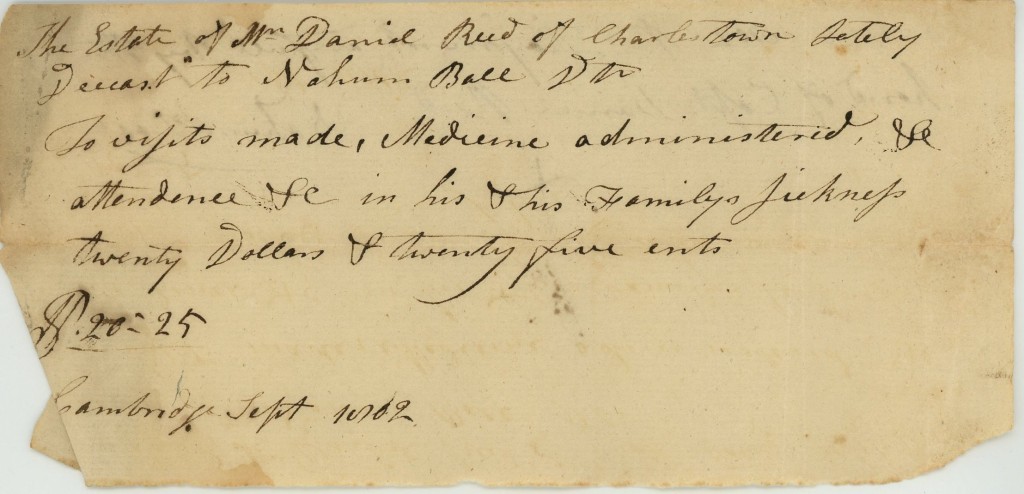 The Estate of Mr Daniel Reed of Charlestown Lately
Deceast to Nahum Ball Dr
To visits made, Medicine administered, &c
attendence &c in his & his Familys sickness
twenty Dollars & twenty five ents
D. 20-25
Cambridge Sept 1802